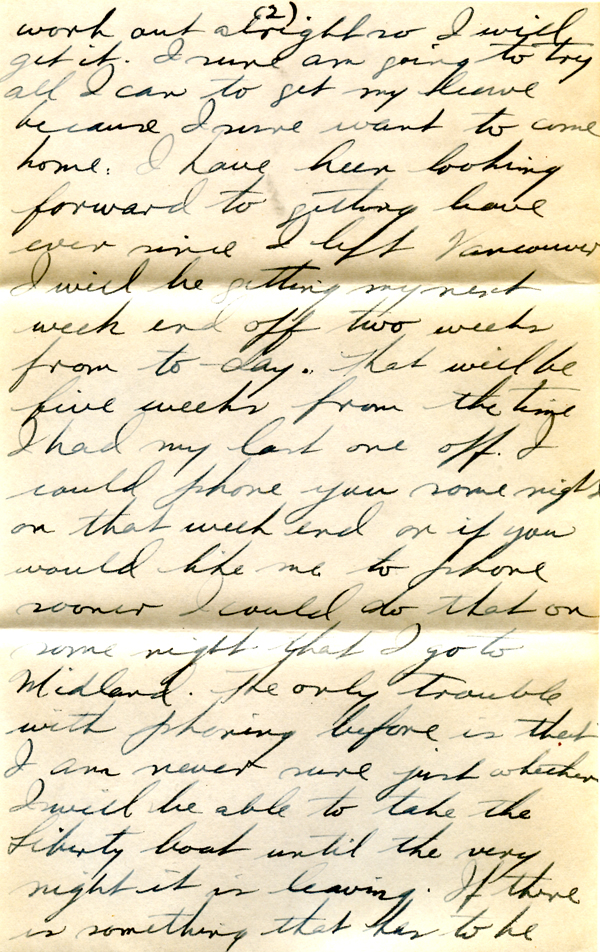 (2)
work out alright so I will
get it. I sure am going to try
all I can to get my leave
because I sure want to come
home. I have been looking
forward to getting leave
ever since I left Vancouver
I will be getting my next
week end off two weeks
from to-day. That will be
five weeks from the time
I had my last one off. I
could phone you some night
on that week end or if you
would like me to phone
sooner I could do that on
some night that I go to
Midland. The only trouble
with phoning before is that
I am never sure just whether
I will be able to take the
Liberty boat until the very
night it is leaving. If there
is something that has to be